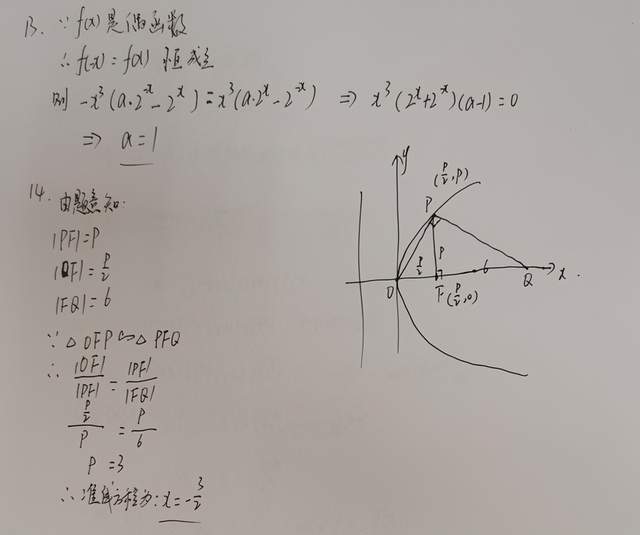 13. ∵ f(x)是偶函数
∴ f(-x) = f(x) 恒成立
则 -x³(a·2⁻ˣ - 2ˣ) = x³(a·2ˣ - 2⁻ˣ) ⇒ x³(2ˣ+2⁻ˣ)(a-1) = 0
⇒ a = 1
14. 由题意知:
|PF| = P
|OF| = P/2
|FQ| = 6
∵ △OFP ∽ △PFQ
∴ |OF|/|PF| = |PF|/|FQ|
(P/2)/P = P/6
P = 3
∴ 准线方程为: x = -3/2
y
(P/2, P)
P
P/2
P
6
O
F (P/2, 0)
Q
x